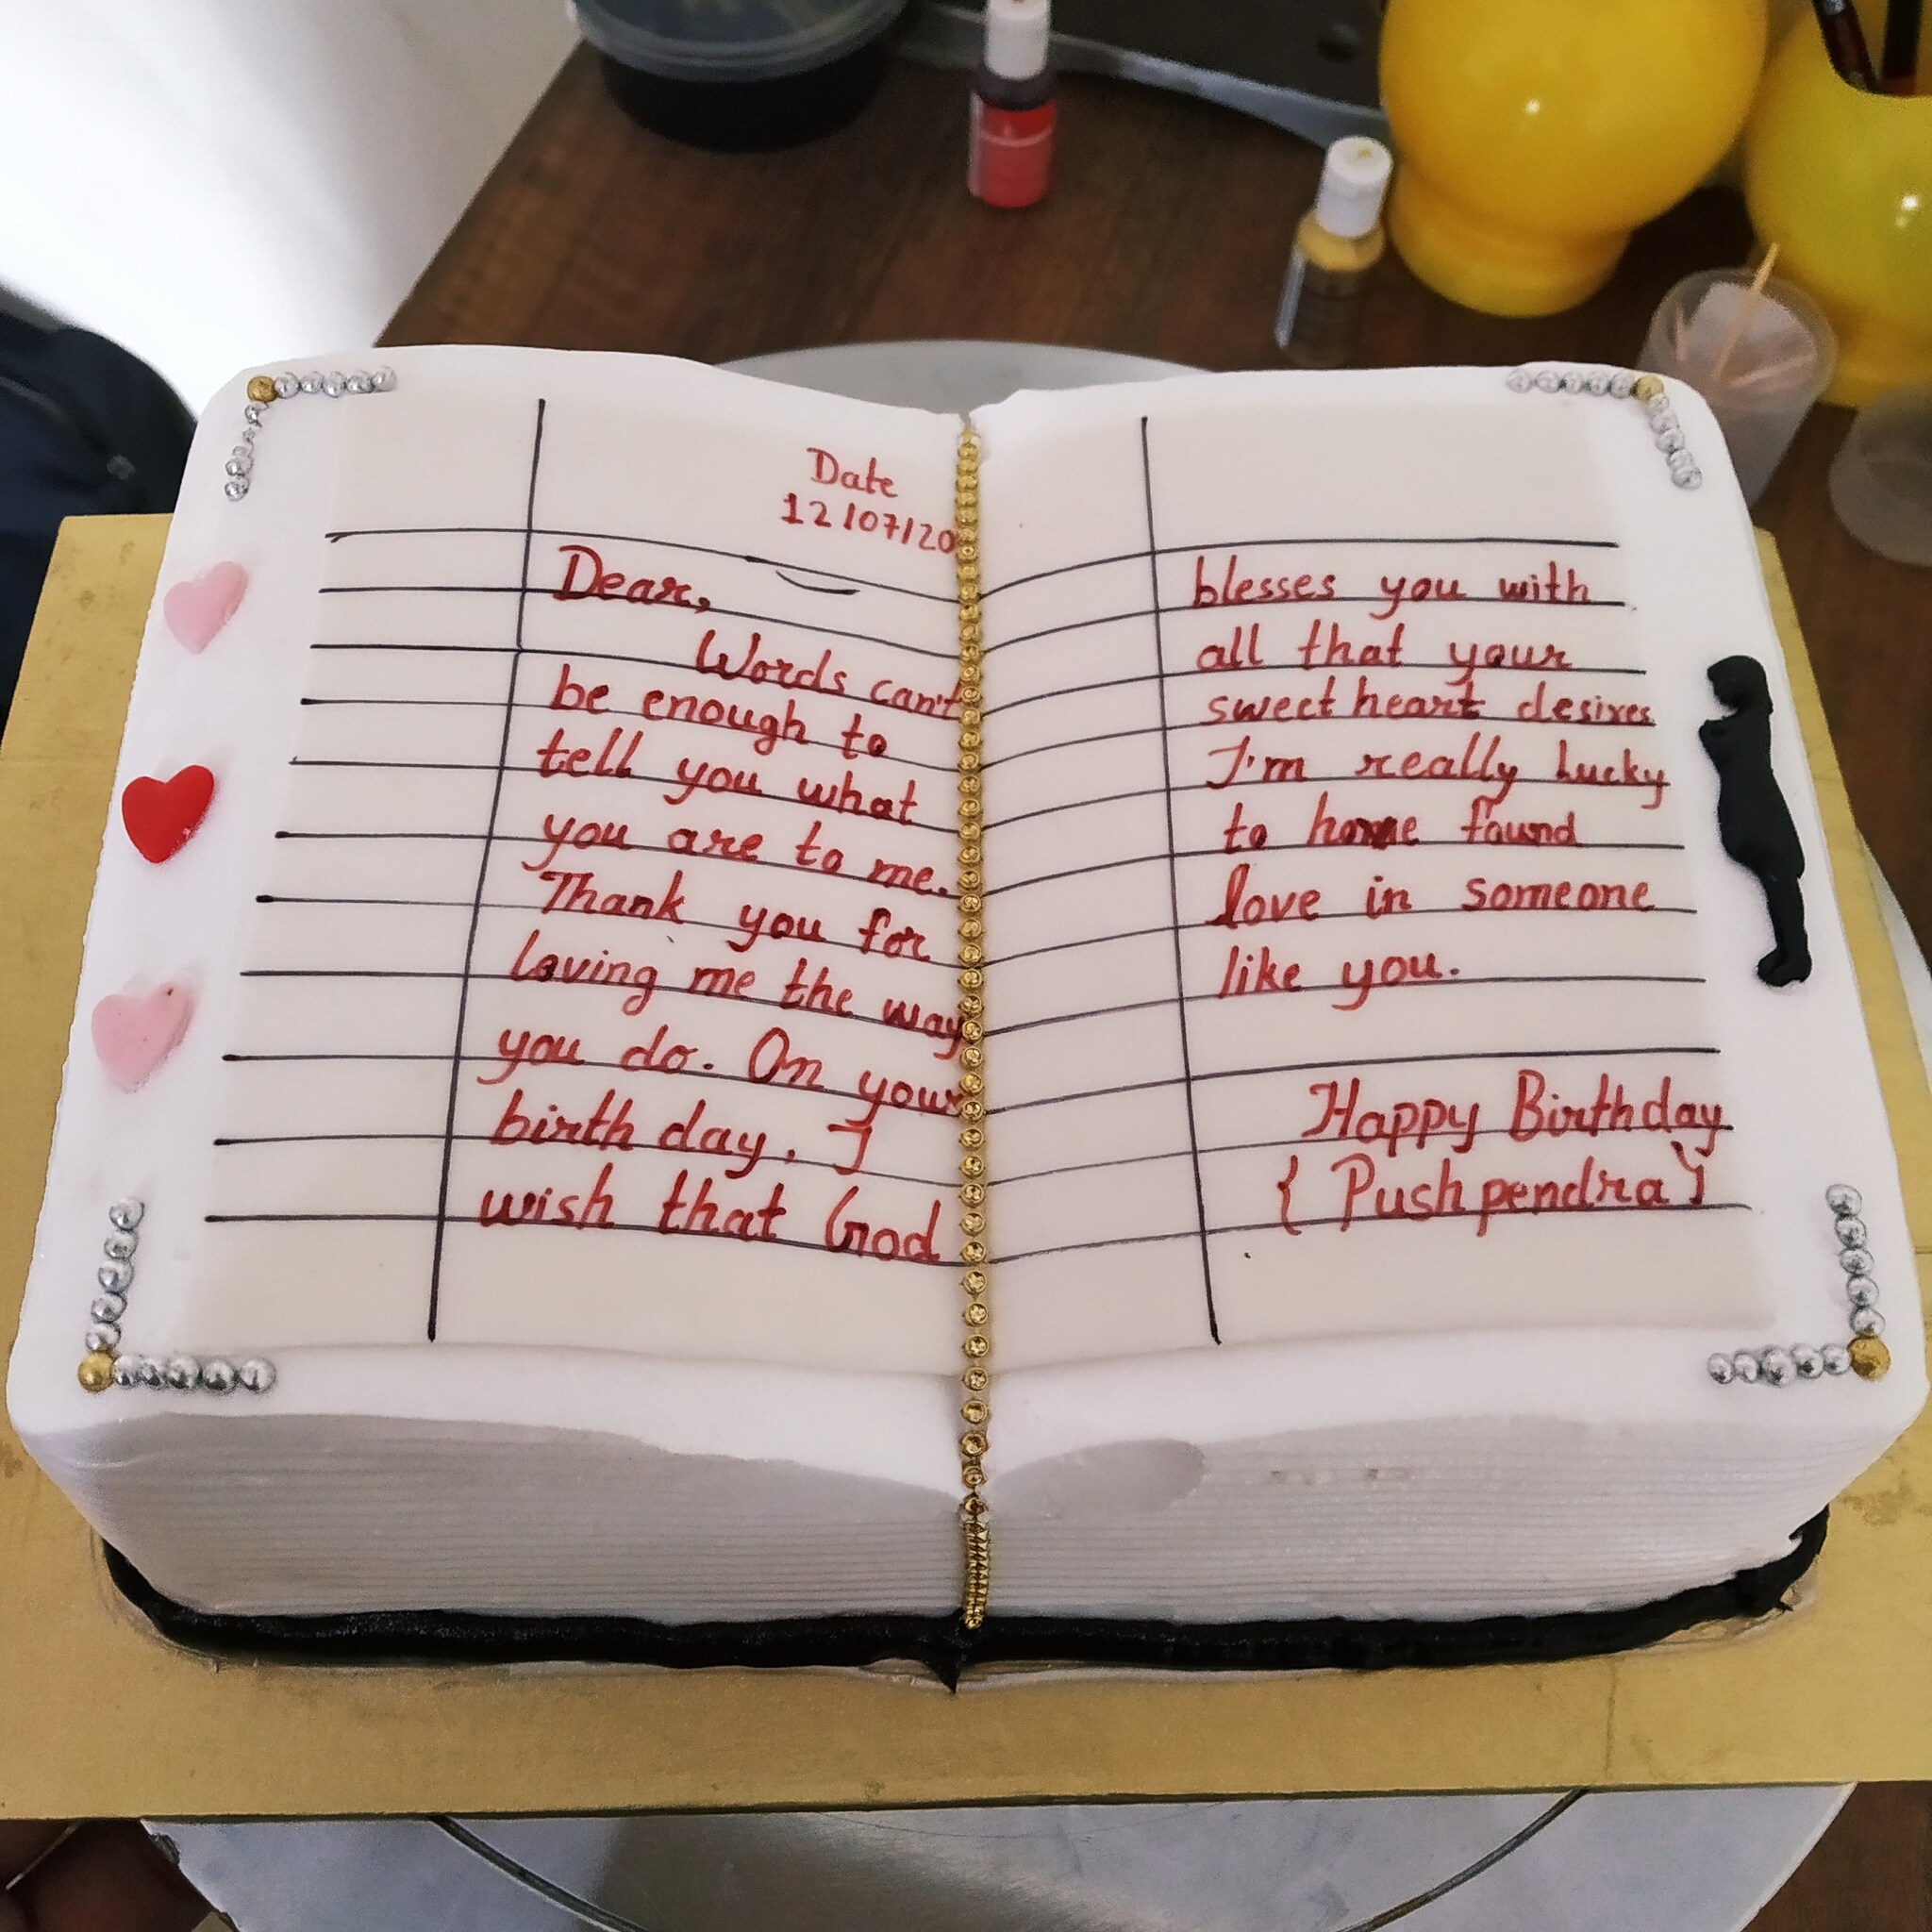 Date
12/07/20
Dear,
Words can't
be enough to
tell you what
you are to me.
Thank you for
loving me the way
you do. On your
birth day. I
wish that God
blesses you with
all that your
sweet heart desires
I'm really lucky
to found
love in someone
like you.
Happy Birthday
{ Pushpendra }